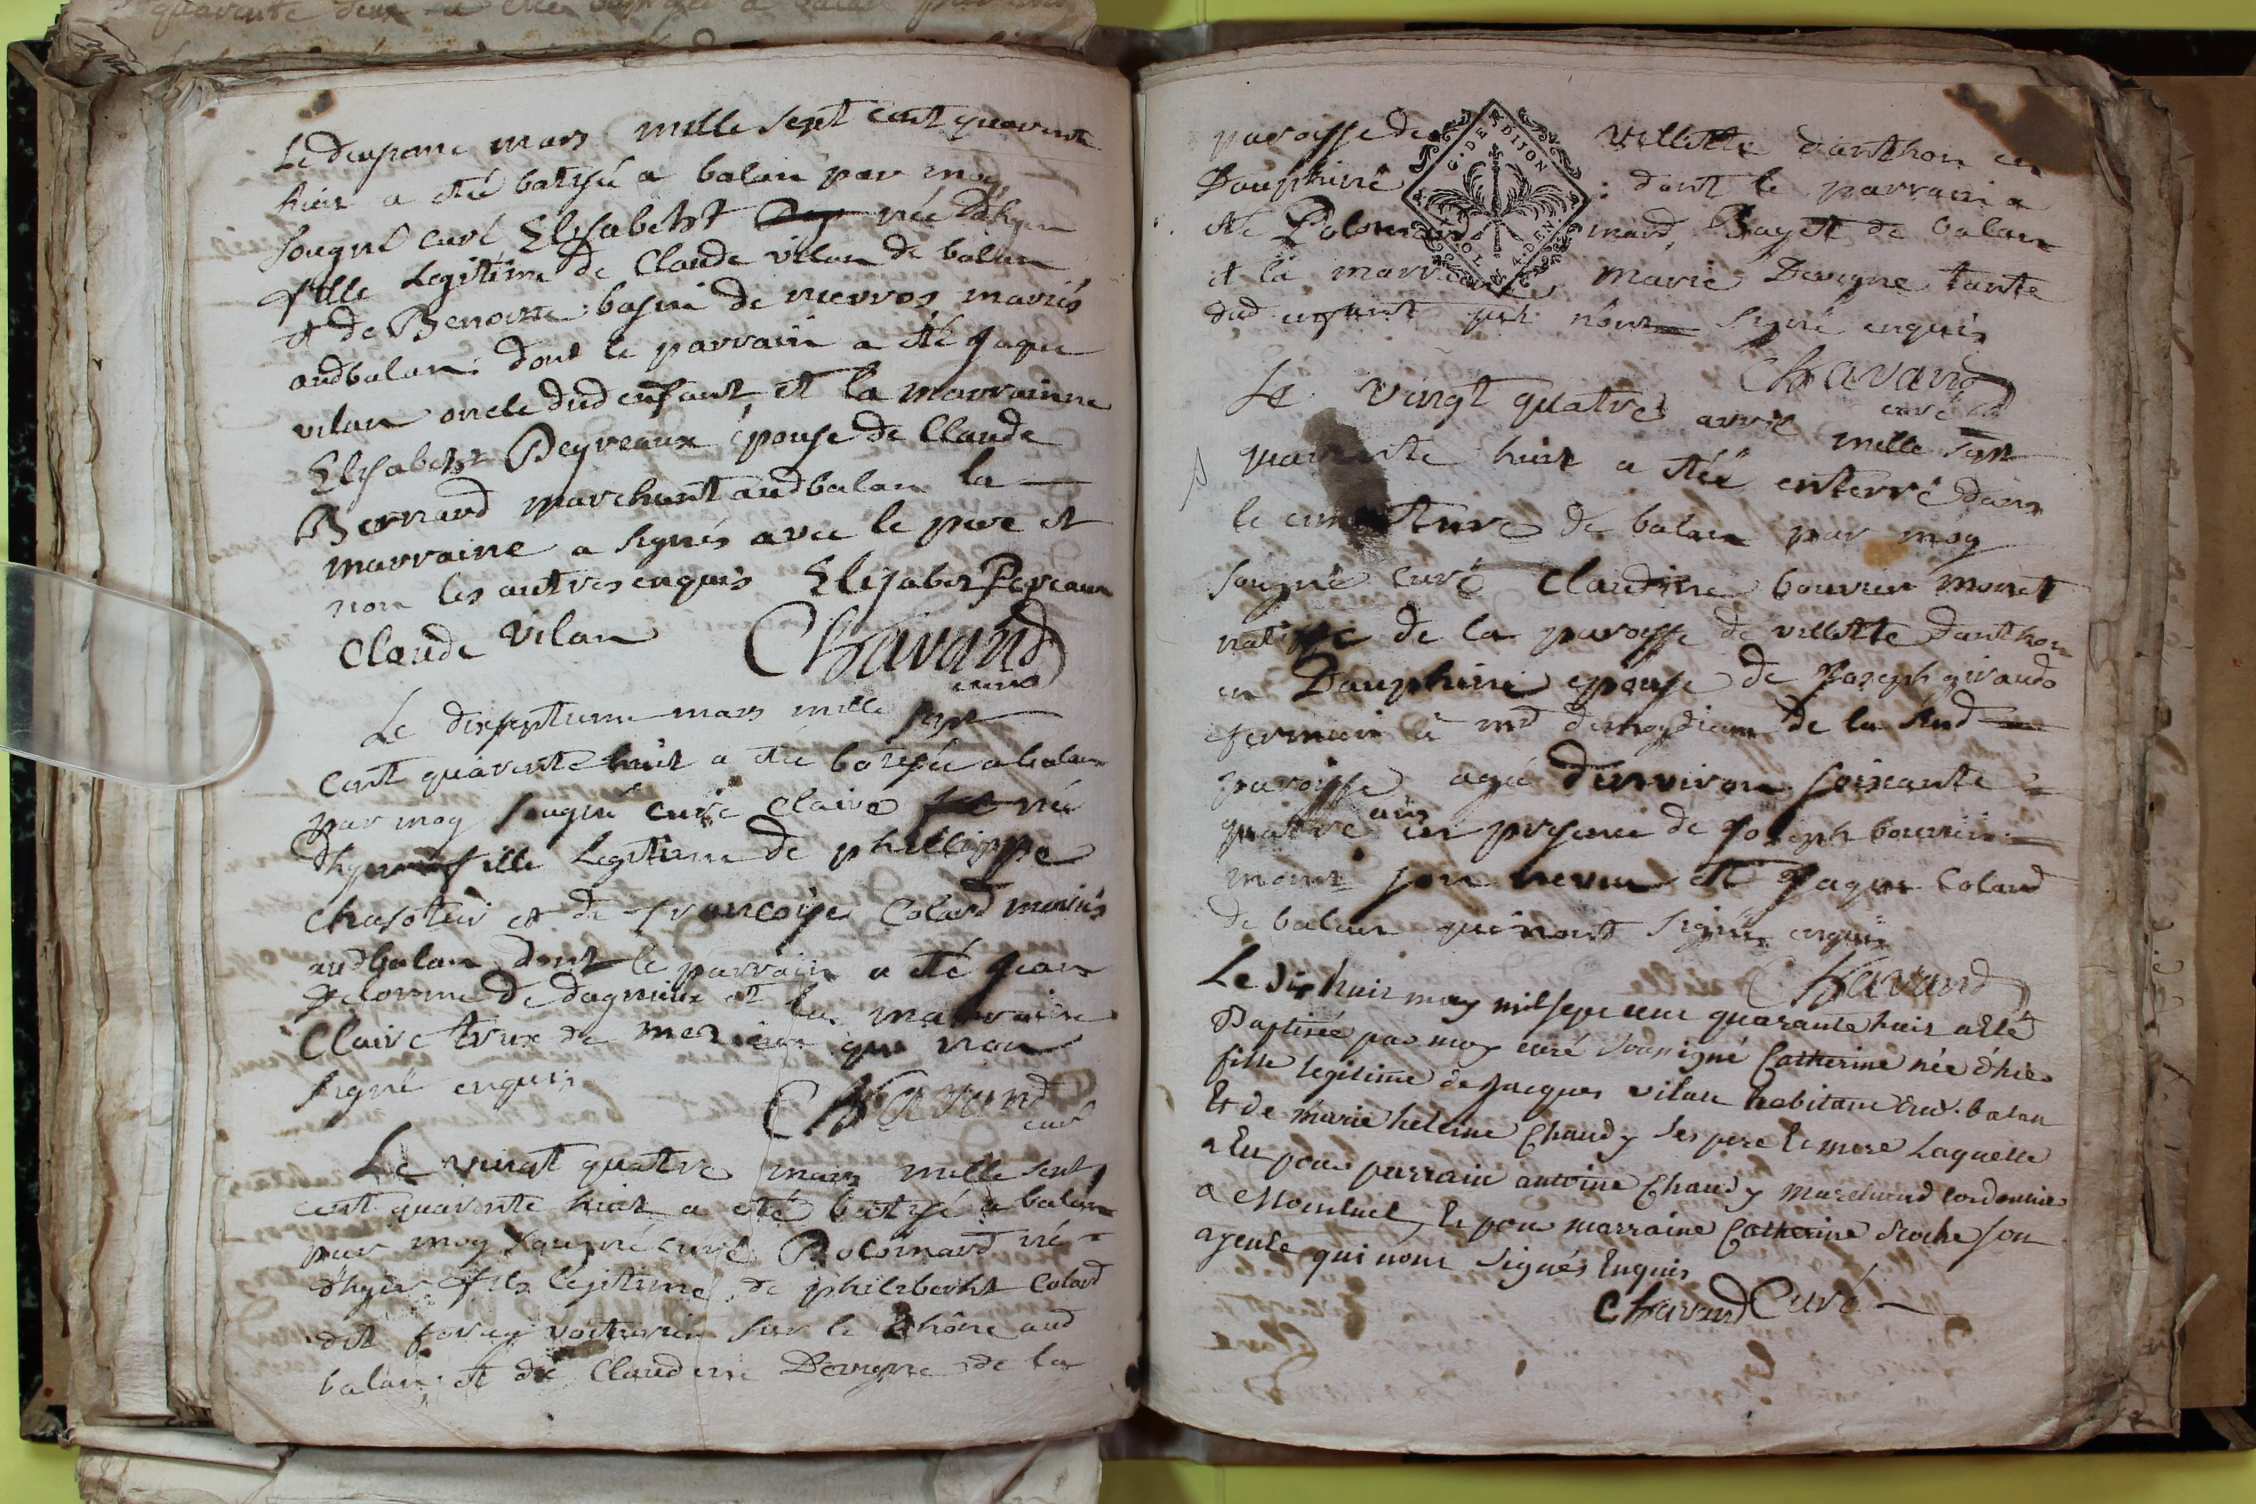 Le deuxieme mars mille sept cent quarente
huit a eté batisée a balan par moy
sougné curé Elisabeth née d'hyer
fille Legitime de Claude vilan de balan
et de Benoitte basin de nievros mariés
audbalan: dont le parrain a eté Jaque
vilan oncle dud enfant et la marrainne
Elisabeth Peyreaux épouse de Claude
Bernard marchant audbalan la
marraine a signés avec le pere et
non les autres enquis Elisabet Pereaux
Claude Vilan Chavand
curé
Le dixseptieme mars mille sept
cent quarente huit a eté batisée a balan
par moy sougné curé Claire née
d'hyer fille Legitime de philippe
et de francoise Colard mariés
audbalan dont le parrain a eté Jean
Delorme de dagnieux et la marraine
Claire trux de qui n'on
signé enquis Chavand
curé
Le vingt quatre mars mille sept
cent quarente huit a eté batisé a balan
par moy sougné curé Polomard né
d'hyer fils legitime de philibert Colard
dit forey voiturier sur le Rhône aud
balan et de Claudine Devigne de la
paroisse de Villette d'anthon en
Dauphiné : dont le parrain a
eté Polomard Bayet de balan
et la marraine Marie Devigne tante
dud enfant qui n'ont signé enquis
Chavand
curé
Le vingt quatre avril mille sept
quarente huit a étée enterré dans
le cimetiere de balan par moy
sougné curé Claudine bouvier monet
native de la paroisse de villette d'anthon
en Dauphiné epouse de Joseph giraud
fermier à de la sud
paroisse agée d'environ soixante
quatre ans en presence de Joseph bouvier
monet son neveu et Jaque Colard
de balan qui n'ont signé enquis
Chavand
Le dix huit may mil sept cent quarante huit a Eté
Baptisée par moy curé soussigné Catherine née d'hier
fille legitime de Jacques vilan habitant aud. balan
Et de marie helaine Chaudy ses pere Et mere Laquelle
a Eu pour parrain antoine Chaudy marchand cordonnier
a Montluel, Et pour marraine Catherine son
ayeule qui n'ont signés Enquis
Chavand Curé
G. DE DIJON